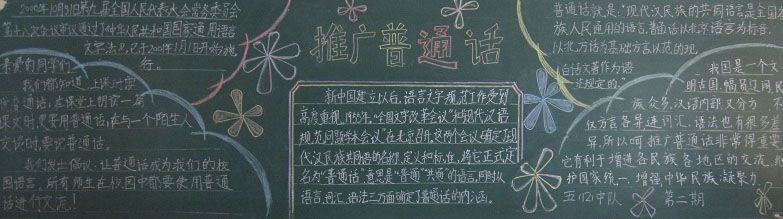 2000年10月31日第九届全国人民代表大会常务委员会
第十八次会议审议通过了《中华人民共和国国家通用语言
文字法》,已于2001年1月1日开始施
行。
亲爱的同学们
我们都知道,上课时要
讲普通话,在课堂上朗读一篇
课文时,更要用普通话,在与一个陌生人
交谈时,要说普通话。
我们发出倡议,让普通话成为我们的校
园语言,所有师生在校园中都要使用普通
话进行交流!
推广普通话
新中国建立以后,语言文字规范工作受到
高度重视,1955年,“全国文字改革会议”和“现代汉语
规范问题学术会议”在北京召开。这两个会议确定了现
代汉民族共同语的名称、定义和标准,将它正式定
名为“普通话”意思是“普通”“共通”的语言,同时从
语言、词汇、语法三方面确定了普通话的内涵。
普通话就是:“现代汉民族的共同语言是全国各
族人民通用的语言。普通话以北京语言为标音,
以北方话为基础方言,以范的现
代白话文著作为语
法规定的。
我国是一个文
明古国,幅员辽阔,民
族众多,汉语内部又分方
仅方言各异,连词汇、语法也有很多差
异,所以呵推广普通话非常得重要
它有利于增进各民族各地区的交流,
护国家统一,增强中华民族凝聚力
五(2)中队 第二期